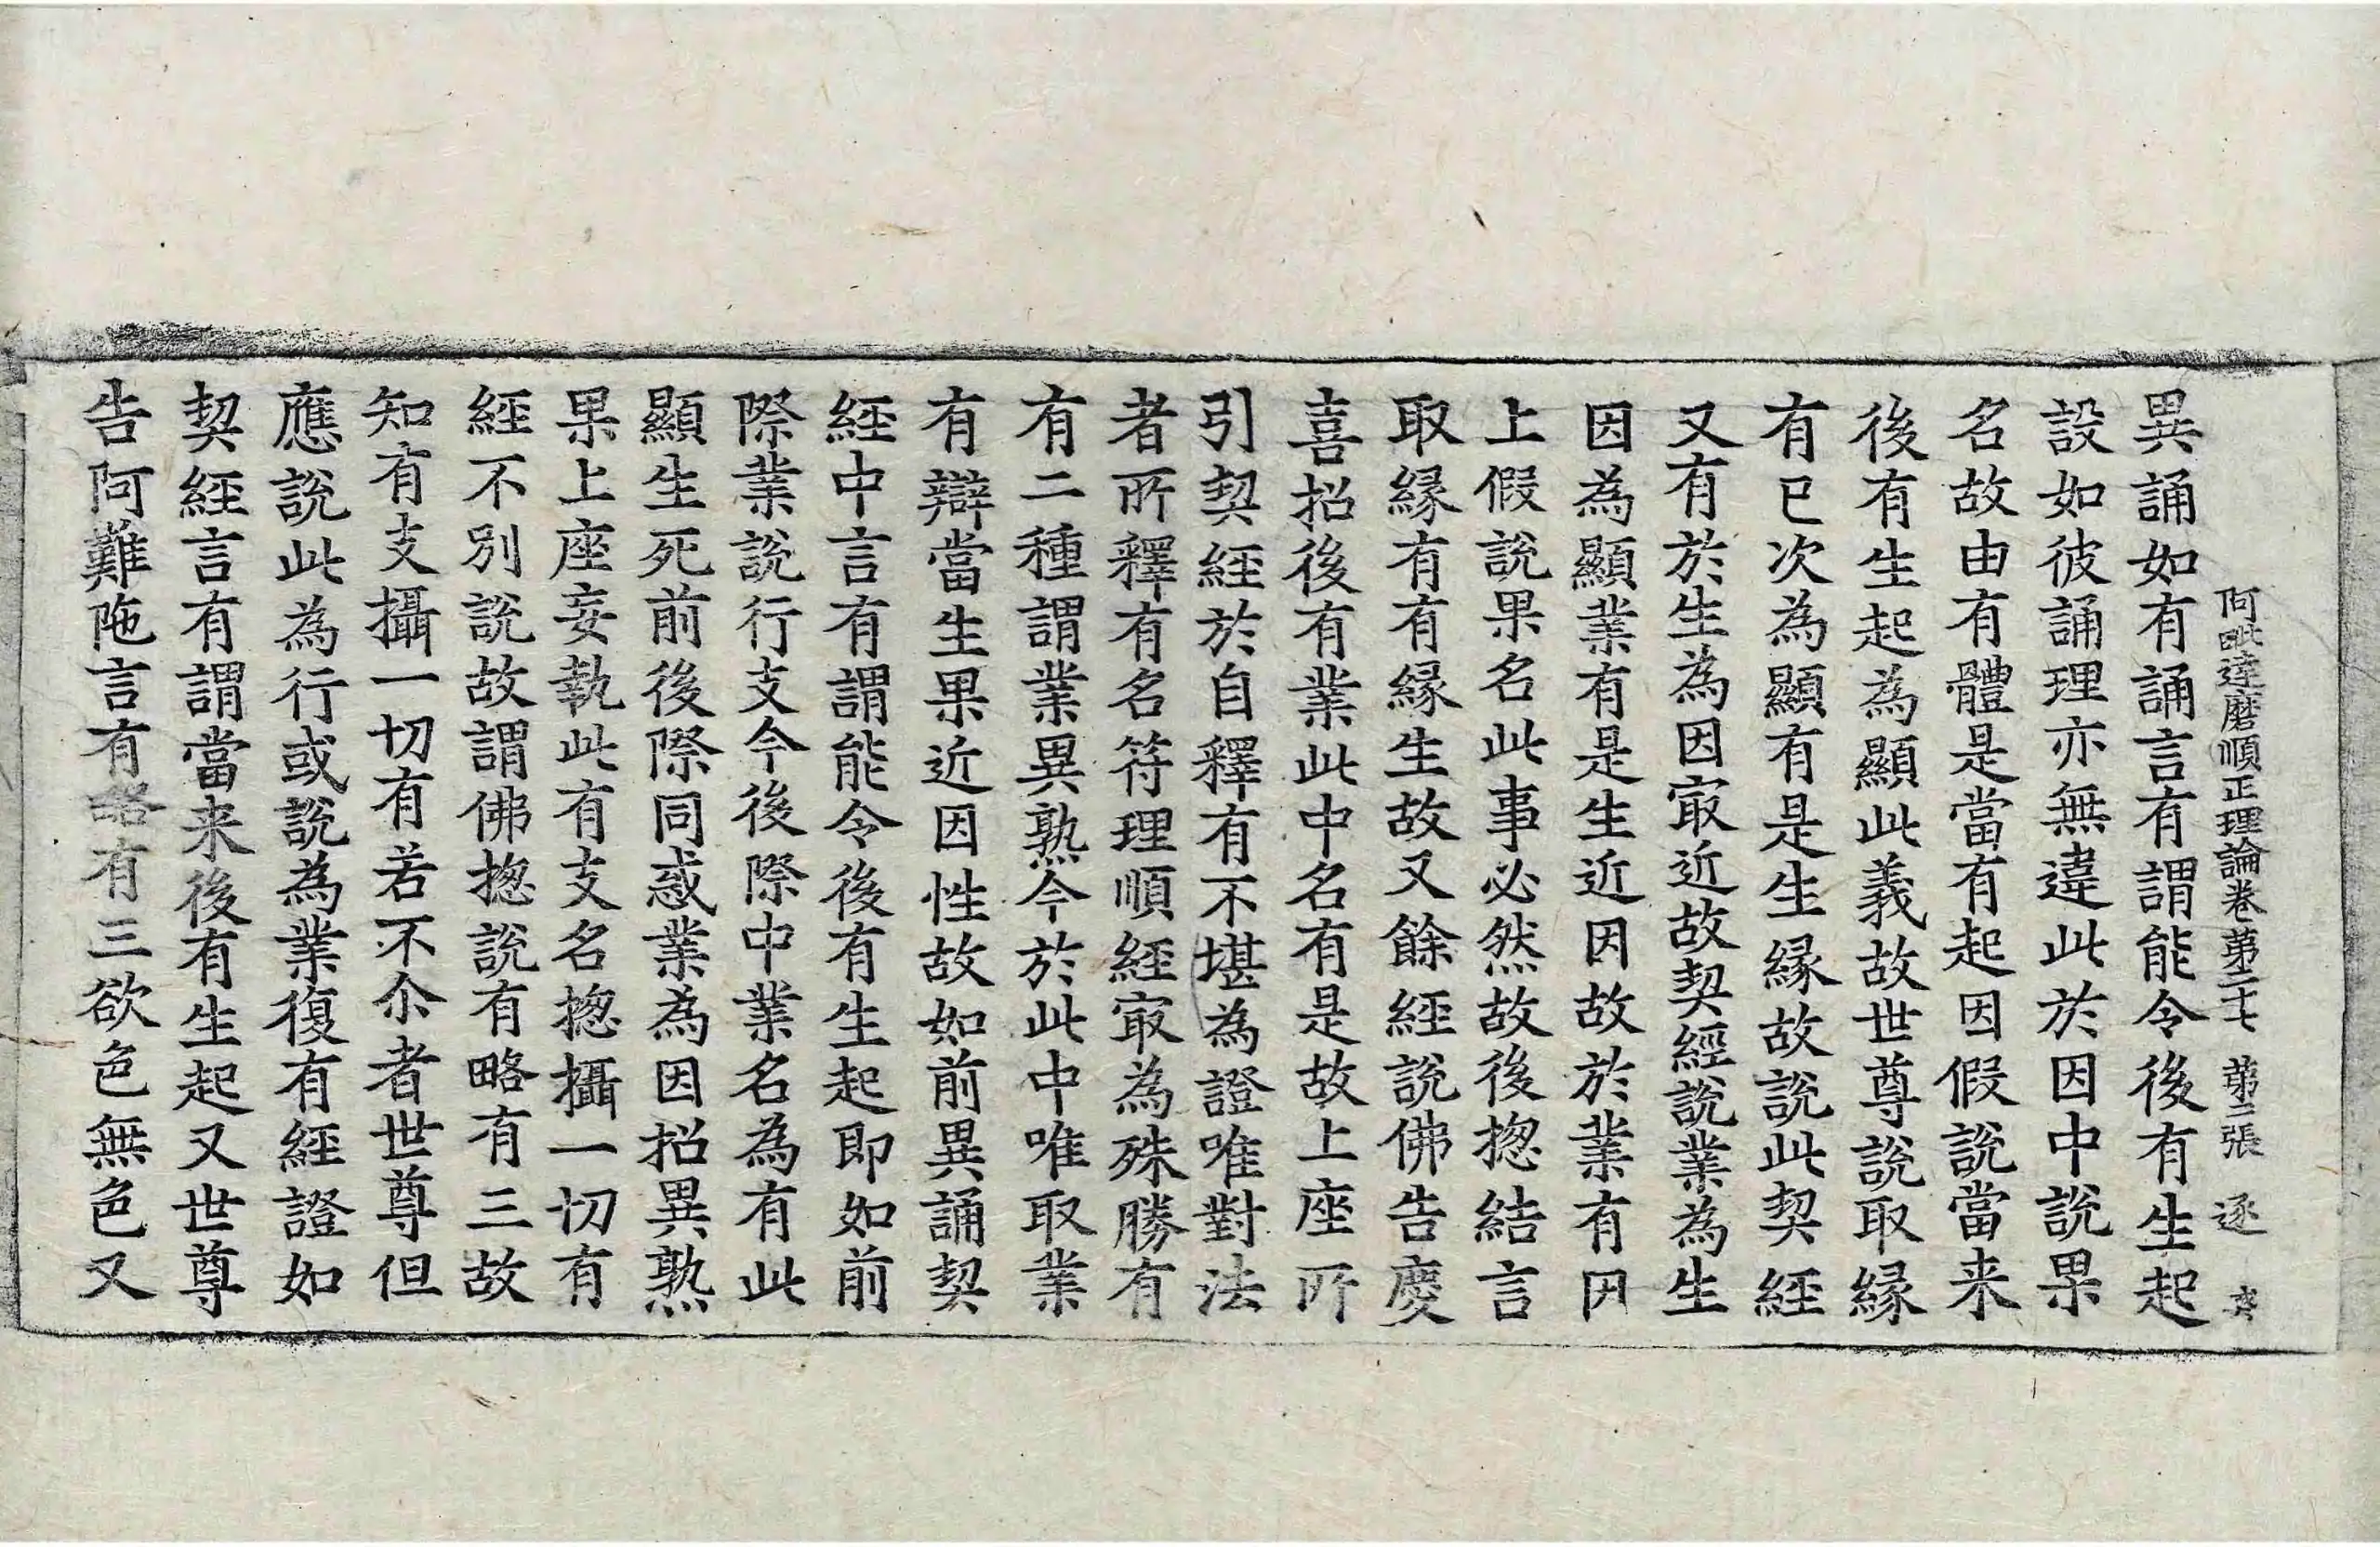 阿毗達磨順正理論卷苐二十七 苐二張 逐
異誦如有誦言有謂能令後有生起
設如彼誦理亦無違此於因中說果
名故由有體是當有起因假說當来
後有生起為顯此義故世尊說取縁
有已次為顯有是生縁故說此契經
又有於生為因㝡近故契經說業為生
因為顯業有是生近因故於業有因
上假說果名此事必然故後揔結言
取縁有有縁生故又餘經說佛告慶
喜招後有業此中名有是故上座所
引契經於自釋有不堪為證唯對法
者所釋有名符理順經㝡為殊勝有
有二種謂業異熟今於此中唯取業
有辯當生果近因性故如前異誦契
經中言有謂能令後有生起即如前
際業說行支今後際中業名為有此
顯生死前後際同惑業為因招異熟
果上座妄執此有支名揔攝一切有
經不別說故謂佛揔說有略有三故
知有支攝一切有若不尒者世尊但
應說此為行或說為業復有經證如
契經言有謂當来後有生起又世尊
告阿難陁言有略有三欲色無色又